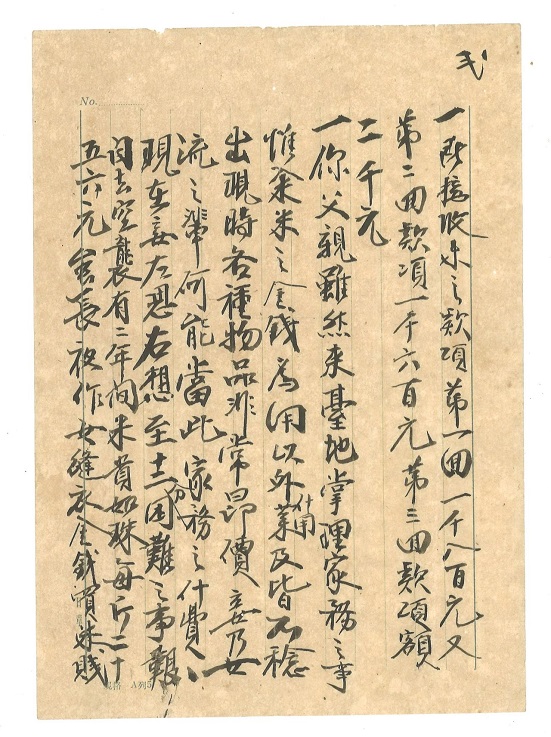 弍
No.
一所接收來之款項第一回一千八百元又
第二回款項一千六百元第三回款項額
二千元
一你父親雖然來臺地掌理家務之事
惟糴米之金錢為用以外什用菜及皆不稔
出現時各種物品非常昂價妾乃女
流之輩何能當此家務之什費
現在妾左思右想至十二分困難之事艱
自去空襲有二年間米貴如珠每斤二十
五六元會長被作女縫衣金錢買米賤
A列5